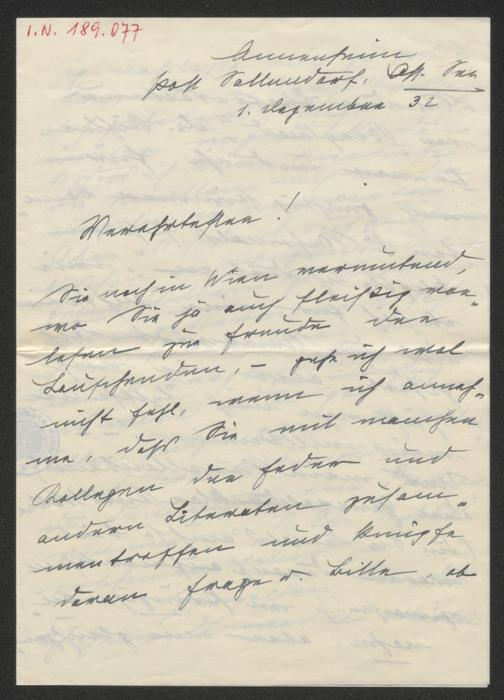 I.N. 189.077
Annenheim
Post Sattendorf, Oss. See
1. Dezember 32
Verehrtester!
Sie noch in Wien vermutend,
wo Sie ja auch fleißig vor-
lesen zur Freude der
Lauschenden, – gehe ich wol
nicht fehl, wenn ich anneh-
me, daß Sie mit manchen
Kollegen der Feder und
andern Literaten zusam-
mentreffen und knüpfe
daran Frage u. Bitte, ob